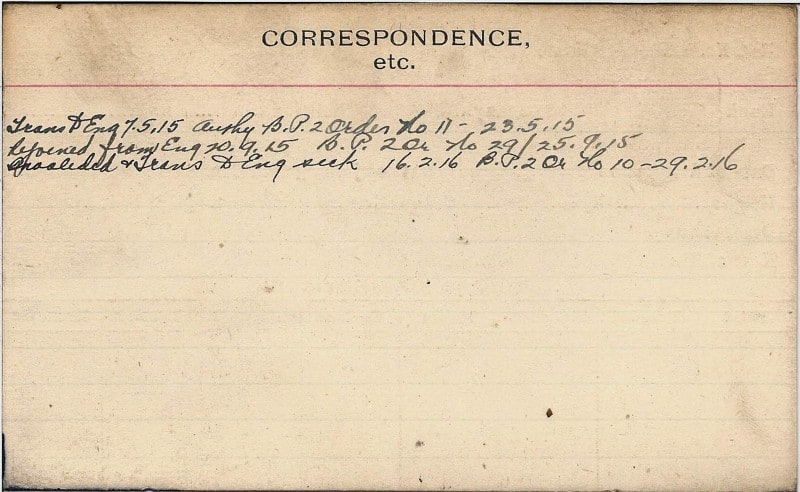 CORRESPONDENCE,
etc.
Trans to Eng 7.5.15 Authy B.P. 2 Order No 11 - 23.5.15
Rejoined from Eng 20.9.15 B.P. 2 Or No 29/25.9.15
& Trans to Eng sick 16.2.16 B.P. 2 Or No 10-29.2.16